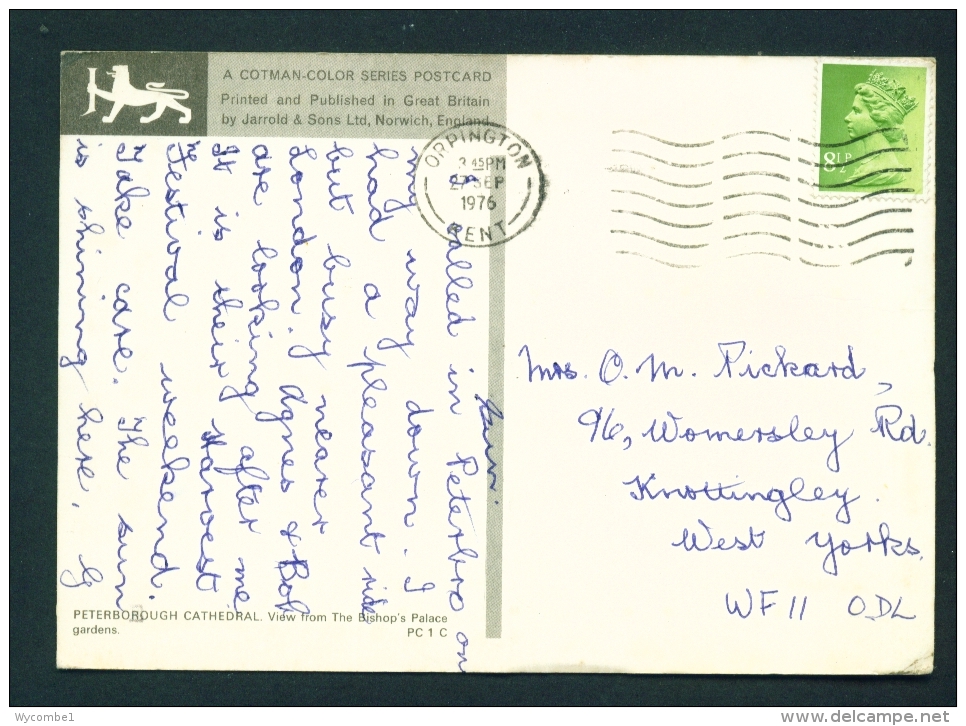 A COTMAN-COLOR SERIES POSTCARD
Printed and Published in Great Britain
by Jarrold & Sons Ltd, Norwich, England
ORPINGTON
3 45PM
27 SEP
1976
KENT
8½P
Called in Peterboro on
my way down. I
had a pleasant ride
but busy nearer
London. Agnes & Bob
are looking after me.
It is their Harvest
Festival weekend.
Take care. The sun
is shining here.
Mrs. O. M. Pickard,
96, Womersley Rd.
Knottingley.
West Yorks.
WF11 ODL
PETERBOROUGH CATHEDRAL. View from The Bishop's Palace
gardens.
PC 1 C
Wycombe1